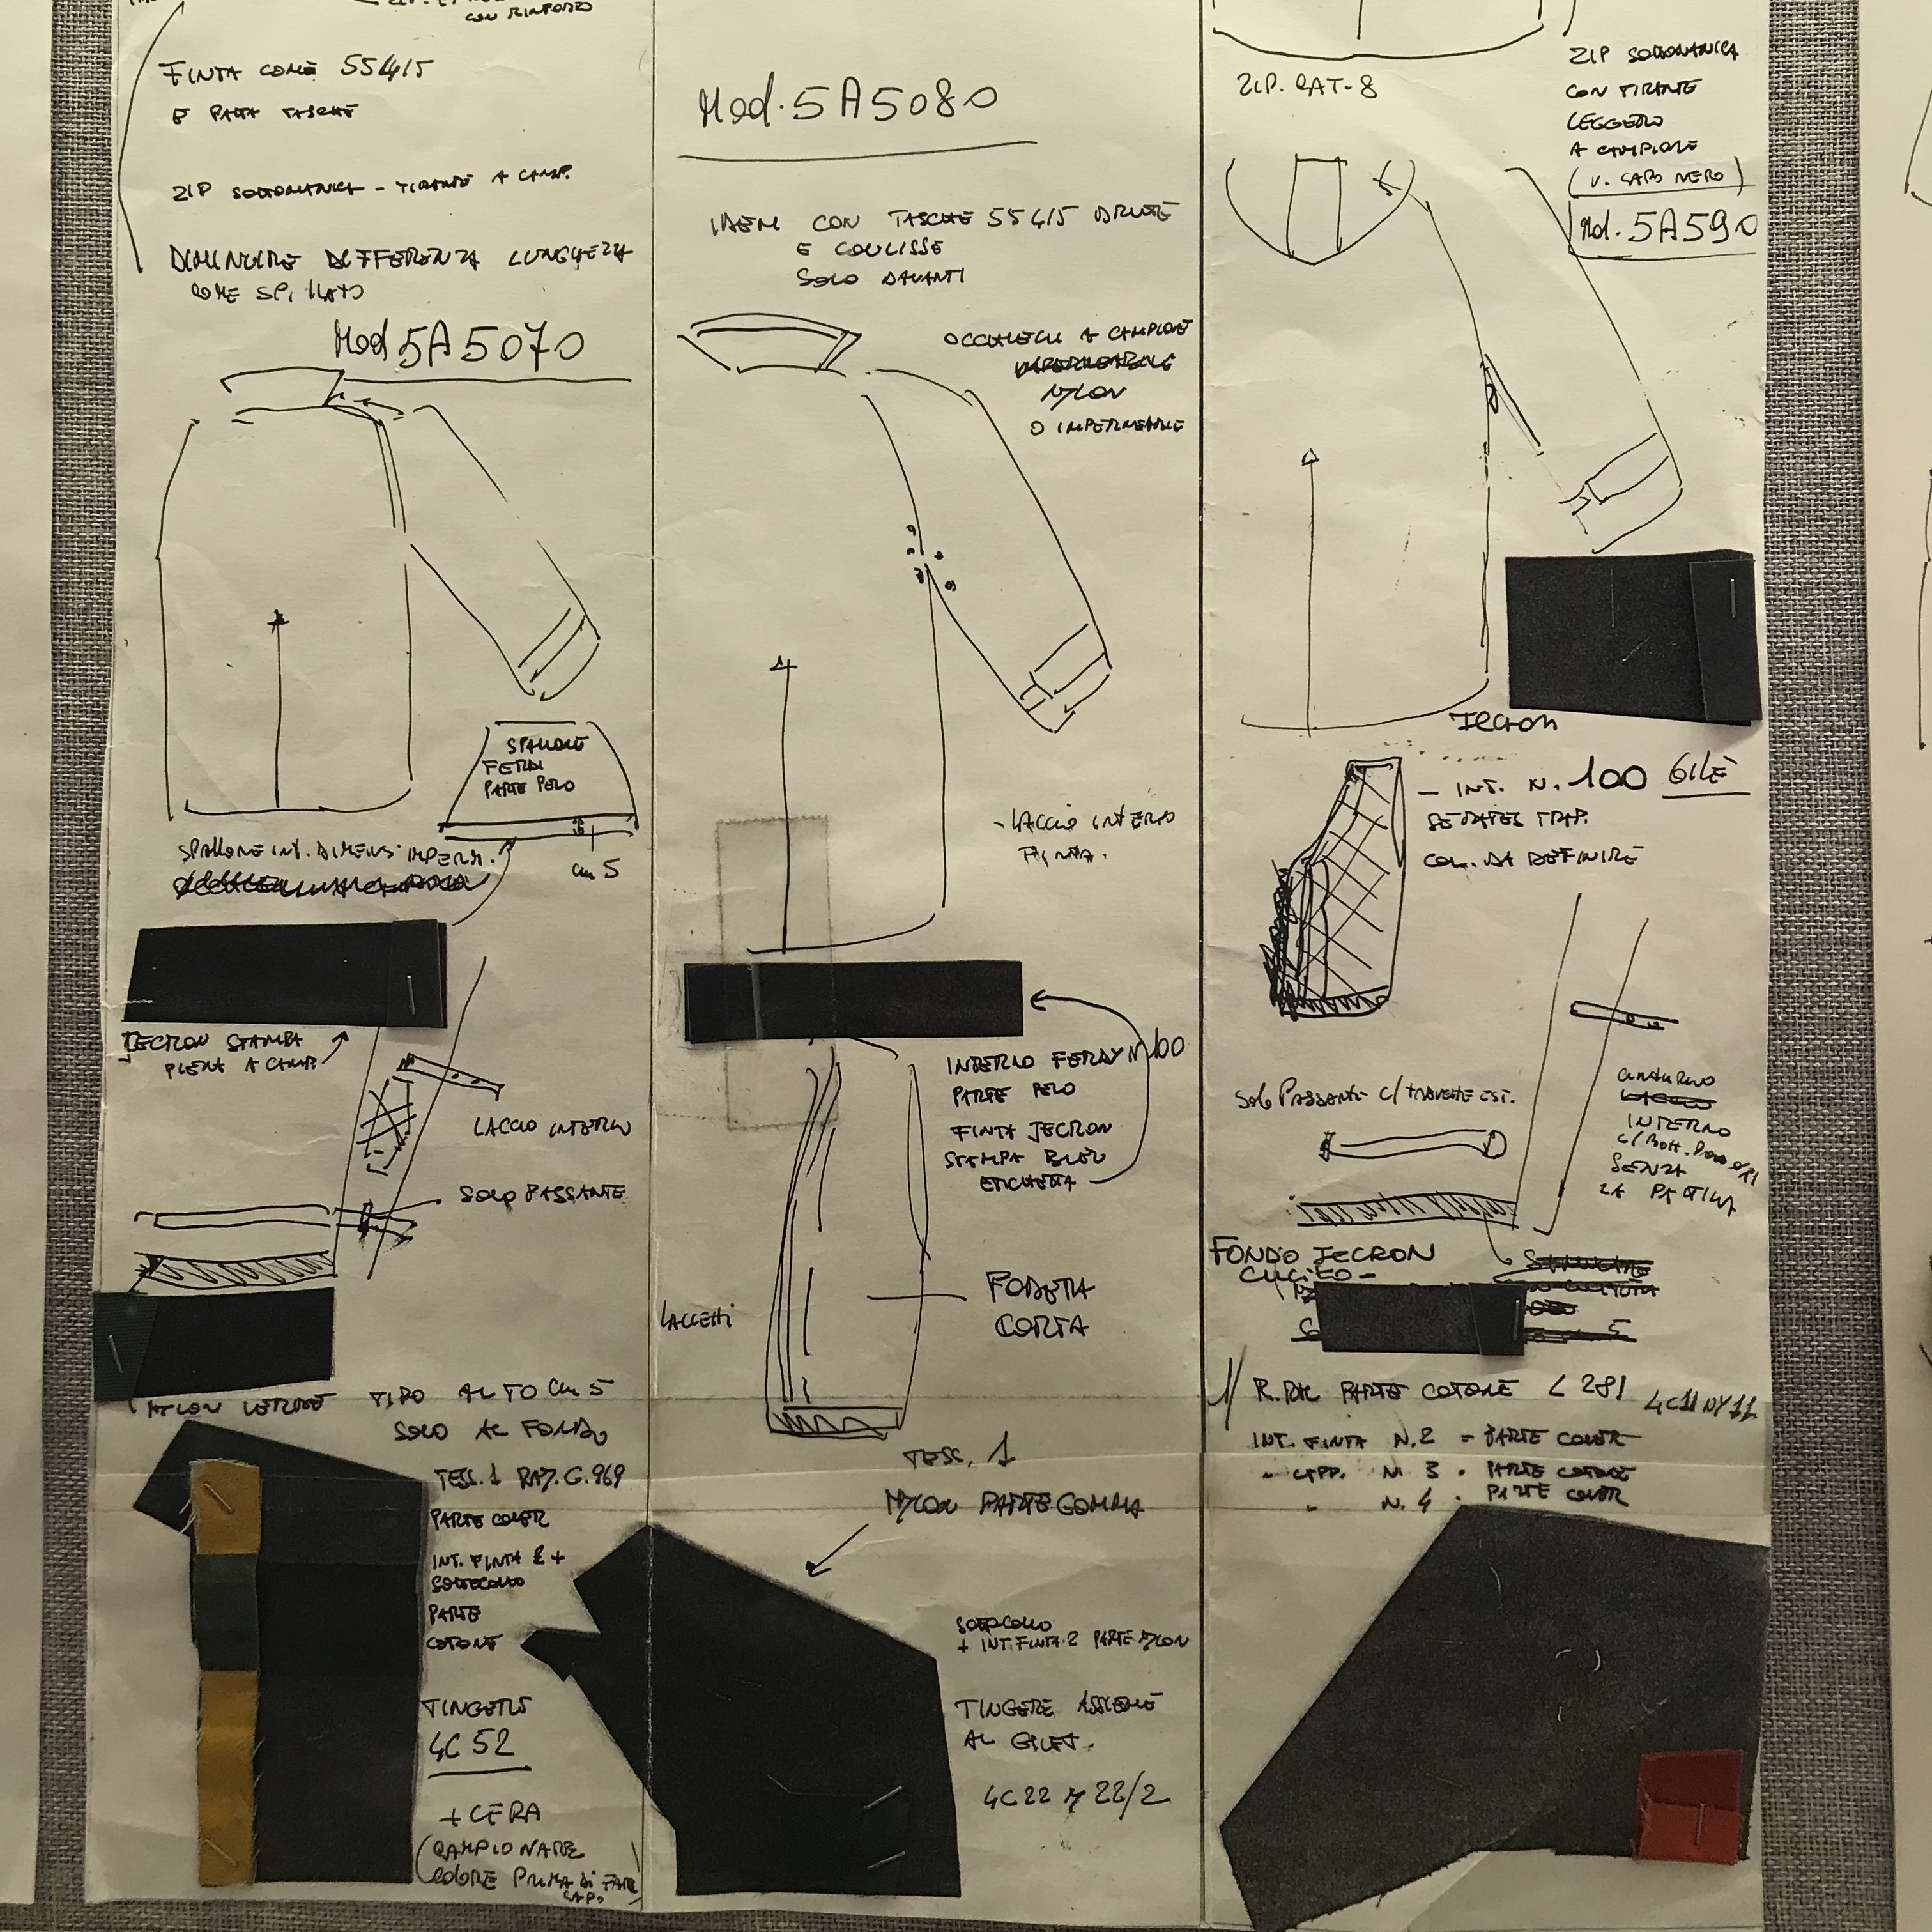 CON RINFORZO
FINTA COME 55415
E PATTA TASCHE
ZIP SOTTOMANICA - TIRANTE A CAMP.
DIMINUIRE DIFFERENZA LUNGHEZZA
COME SPILLATO
Mod 5A5070
SPALLONE
FERDI
PARTE PELO
SPALLONE INT. DIMENS. IMPERM.
cm 5
JECRON STAMPA
PIENA A CAMP.
LACCIO INTERNO
SOLO PASSANTE
NYLON
TIPO ALTO cm 5
SOLO AL FONDO
TESS. 1 RAZ. G. 969
PARTE COVER
INT. FINTA 2 +
SOTTOCOLLO
PARTE
COTONE
TINGERE
4C 52
+ CERA
(CAMPIONARE
COLORE PRIMA DI FARE
CAPO)
Mod. 5A5080
IDEM CON TASCHE 55415
E COULISSE
SOLO DAVANTI
OCCHIELLI A CAMPIONE
NYLON
O IMPERMEABILE
- LACCIO INTERNO
FINTA.
INTERNO FERDY N 100
PARTE PELO
FINTA JECRON
STAMPA BLEU
ETICHETTA
LACCETTI
FODERA
CORTA
TESS. 1
NYLON PARTE GOMMA
SOTTOCOLLO
+ INT. FINTA 2 PARTE NYLON
TINGERE ASSIEME
AL GILET.
4C22 22/2
ZIP SOTTOMANICA
CON TIRANTE
LEGGERO
A CAMPIONE
(V. CAPO NERO)
ZIP. RAT-8
Mod. 5A590
Jecron
- INT. N. 100 GILÈ
COL. DA DEFINIRE
SOLO PASSANTE C/ TRAVETTE EST.
INTERNO
SENZA
LA PATTINA
FONDO JECRON
CUCITO -
1/ R. PARTE COTONE L 281
4C11 NY 11
INT. FINTA N. 2 = PARTE COVER
" CAPP. N. 3 . PARTE COTONE
" N. 4 . PARTE COVER